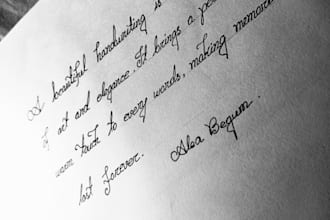 A beautiful handwriting is
of art and elegance. It brings a pe
warm touch to every words, making memori
last forever.
Alea Begum.